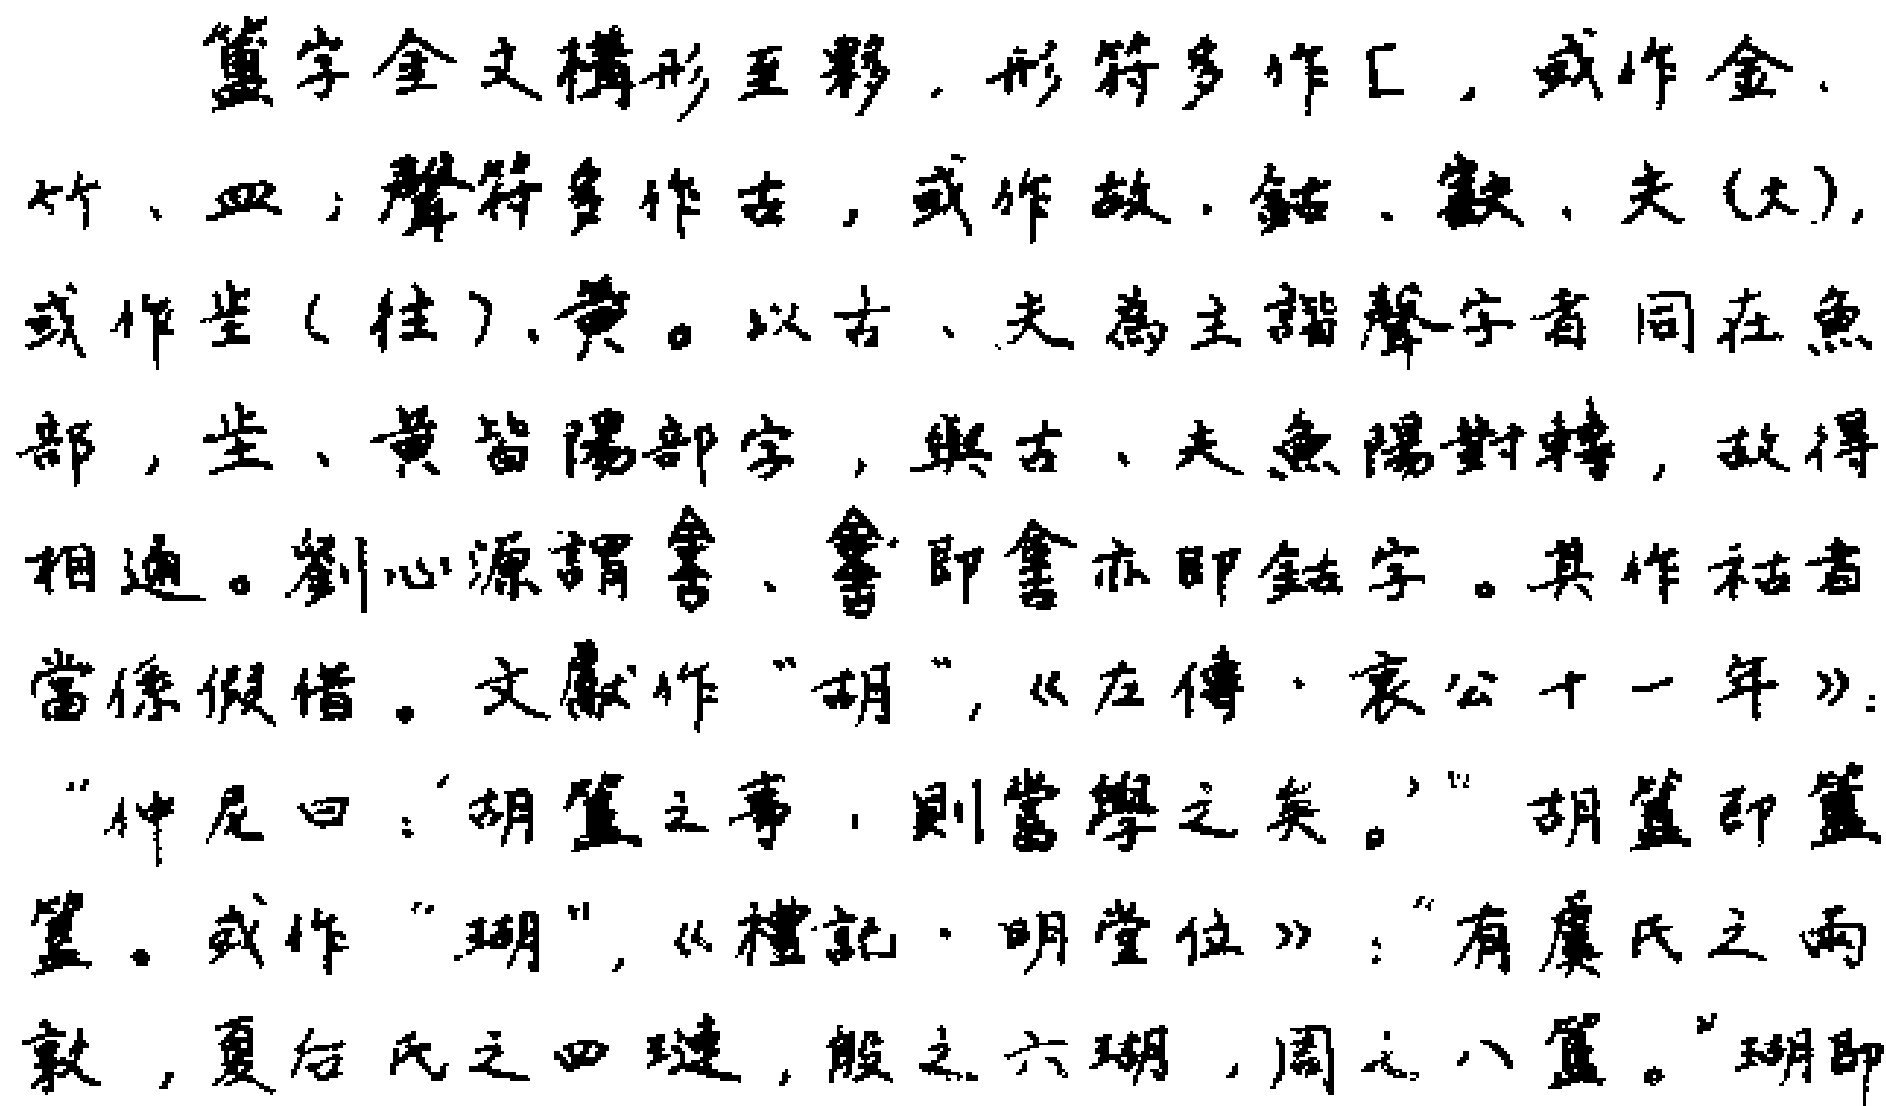 簠字金文構形至夥，形符多作匚，或作金、
竹、皿；聲符多作古，或作故、鈷、、夫（大），
或作㞷（往）、黄。以古、夫為主諧聲字者同在魚
部，㞷、黄皆陽部字，與古、夫魚陽對轉，故得
相通。劉心源謂、即亦即鈷字。其作祜者
當係假借。文獻作“胡”，《左傳·哀公十一年》：
“仲尼曰：‘胡簋之事，則嘗學之矣。’”胡簋即簠
簋。或作“瑚”，《禮記·明堂位》：“有虞氏之兩
敦，夏后氏之四璉，殷之六瑚，周之八簋。”瑚即